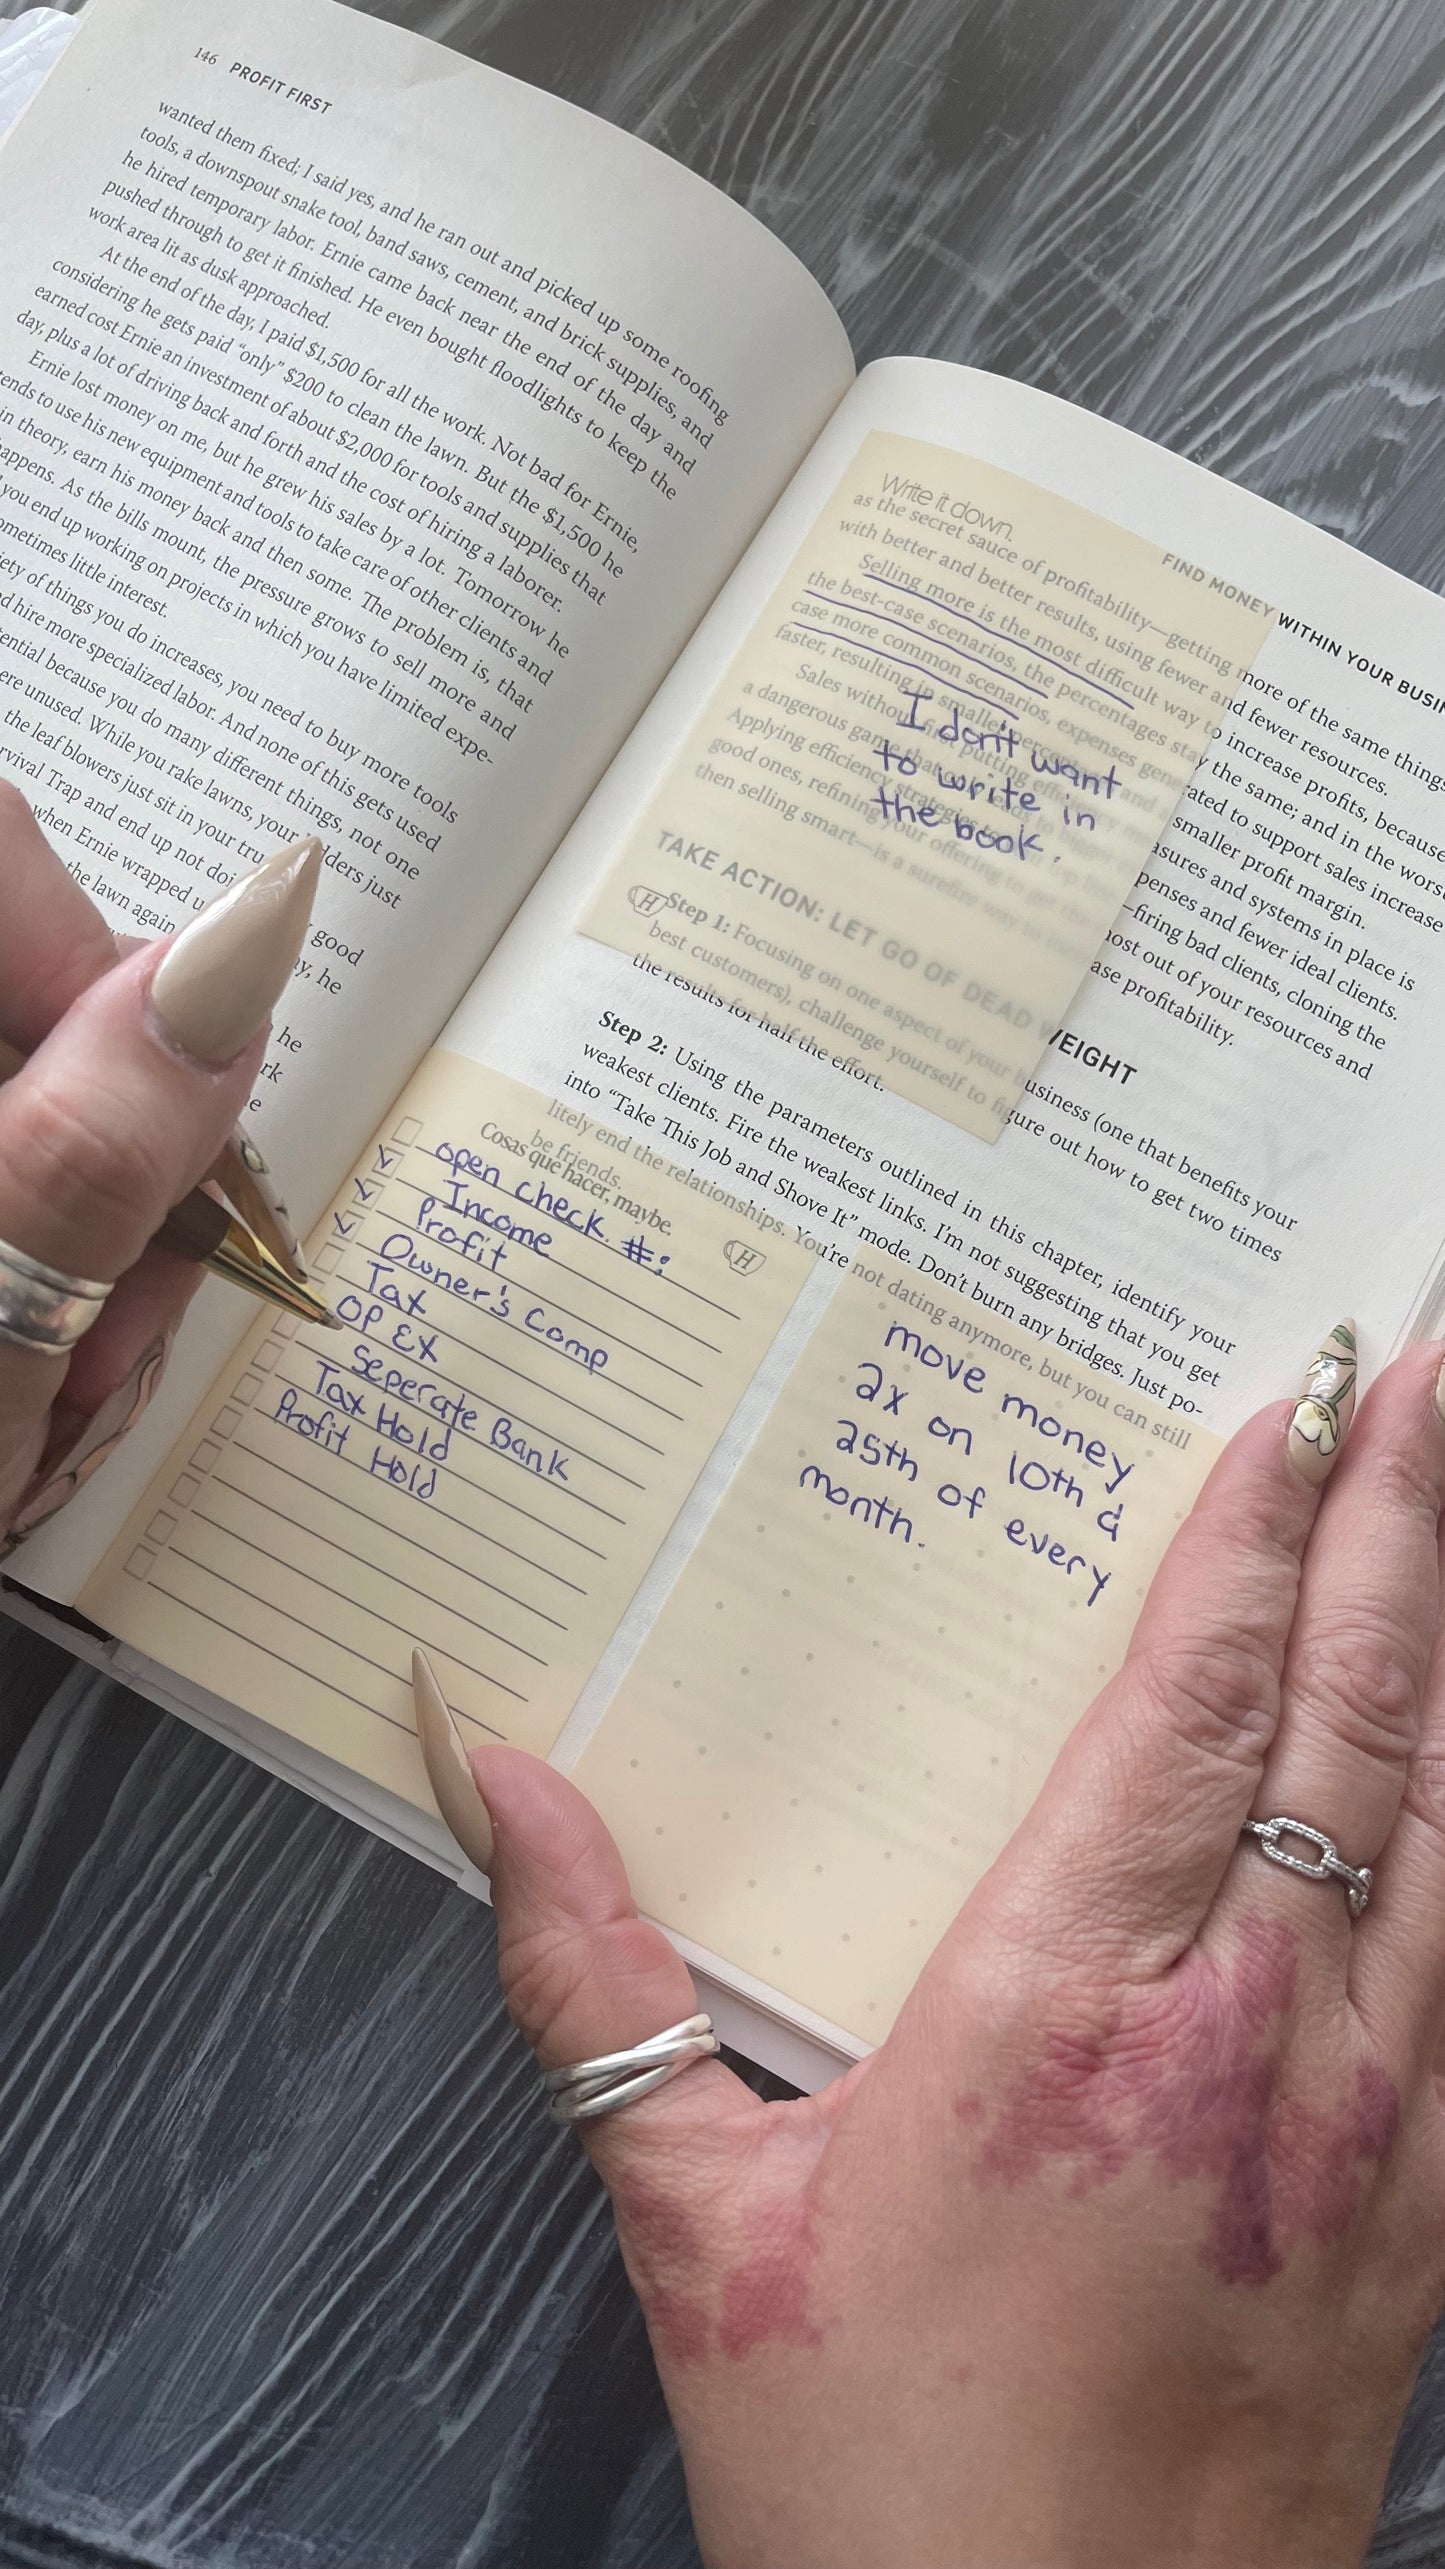 146 PROFIT FIRST
wanted them fixed; I said yes, and he ran out and picked up some roofing
tools, a downspout snake tool, band saws, cement, and brick supplies, and
he hired temporary labor. Ernie came back near the end of the day and
pushed through to get it finished. He even bought floodlights to keep the
work area lit as dusk approached.
At the end of the day, I paid $1,500 for all the work. Not bad for Ernie,
considering he gets paid “only” $200 to clean the lawn. But the $1,500 he
earned cost Ernie an investment of about $2,000 for tools and supplies that
day, plus a lot of driving back and forth and the cost of hiring a laborer.
Ernie lost money on me, but he grew his sales by a lot. Tomorrow he
tends to use his new equipment and tools to take care of other clients and
in theory, earn his money back and then some. The problem is, that
happens. As the bills mount, the pressure grows to sell more and
you end up working on projects in which you have limited expe-
ometimes little interest.
iety of things you do increases, you need to buy more tools
d hire more specialized labor. And none of this gets used
tential because you do many different things, not one
ere unused. While you rake lawns, your ladders just
the leaf blowers just sit in your tru
rvival Trap and end up not doi good
when Ernie wrapped u y, he
the lawn again
he
rk
e
FIND MONEY WITHIN YOUR BUSIN
Write it down.
as the secret sauce of profitability—getting more of the same things
with better and better results, using fewer and fewer resources.
Selling more is the most difficult way to increase profits, because
the best-case scenarios, the percentages stay the same; and in the worst
case more common scenarios, expenses generated to support sales increase
faster, resulting in smaller percentages smaller profit margin.
Sales without first putting efficiency measures and systems in place is
a dangerous game that leads to expenses and fewer ideal clients.
Applying efficiency strategies—firing bad clients, cloning the
good ones, refining your offering to get the most out of your resources and
then selling smart—is a surefire way to increase profitability.
I don't want
to write in
the book.
TAKE ACTION: LET GO OF DEAD WEIGHT
H
Step 1: Focusing on one aspect of your business (one that benefits your
best customers), challenge yourself to figure out how to get two times
the results for half the effort.
Step 2: Using the parameters outlined in this chapter, identify your
weakest clients. Fire the weakest links. I’m not suggesting that you get
into “Take This Job and Shove It” mode. Don’t burn any bridges. Just po-
litely end the relationships. You’re not dating anymore, but you can still
be friends.
Cosas que hacer, maybe.
H
open check. #:
Income
Profit
Owner's Comp
Tax
OP EX
Seperate Bank
Tax Hold
Profit Hold
move money
2x on 10th &
25th of every
month.